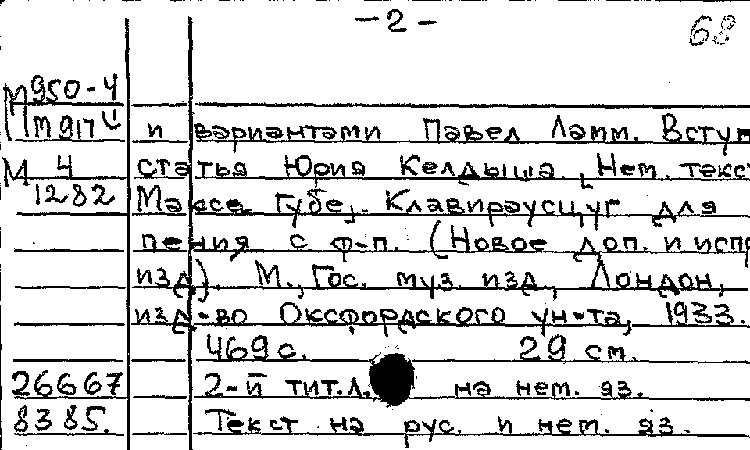 - 2 -
68
М 950-4
М 917 и вариантами Павел Ламм. Вступ
М 4 статья Юрия Келдыша. Нем. текс
1282 Макса Губе. Клавираусцуг для
пения с ф-п. (Новое доп. и испр
изд). М., Гос. муз. изд, Лондон,
изд-во Оксфордского ун-та, 1933.
469 с. 29 см.
26667 2-й тит.л. на нем. яз.
8385. Текст на рус. и нем. яз.